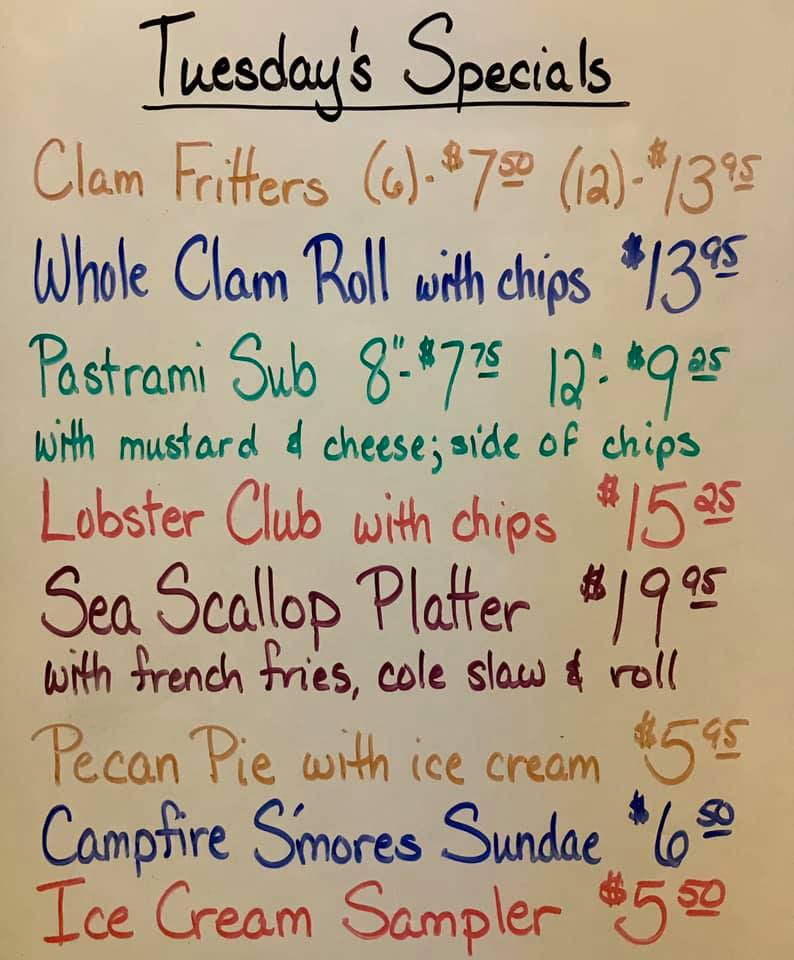 Tuesday's Specials
Clam Fritters (6)-$7.50 (12)-$13.95
Whole Clam Roll with chips $13.95
Pastrami Sub 8"-$7.75 12"-$9.25
with mustard & cheese; side of chips
Lobster Club with chips $15.25
Sea Scallop Platter $19.95
with french fries, cole slaw & roll
Pecan Pie with ice cream $5.95
Campfire S'mores Sundae $6.50
Ice Cream Sampler $5.50